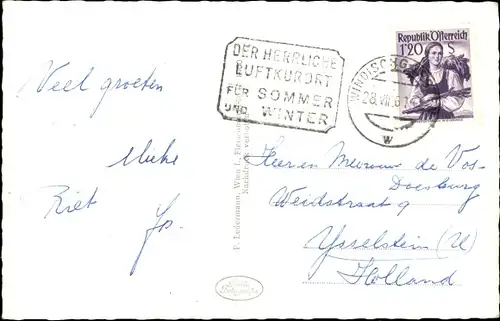 Veel groeten
Mieke
Riet
Jos.
DER HERRLICHE
LUFTKURORT
FÜR SOMMER
UND WINTER
WINDISCHG
28.VII.61
w
Republik Österreich
1'20 S
P. Ledermann, Wien I.,
Heer en Mevrouw de Vos-
Doesburg
Weidstraat 9
Ysselstein (U)
Holland